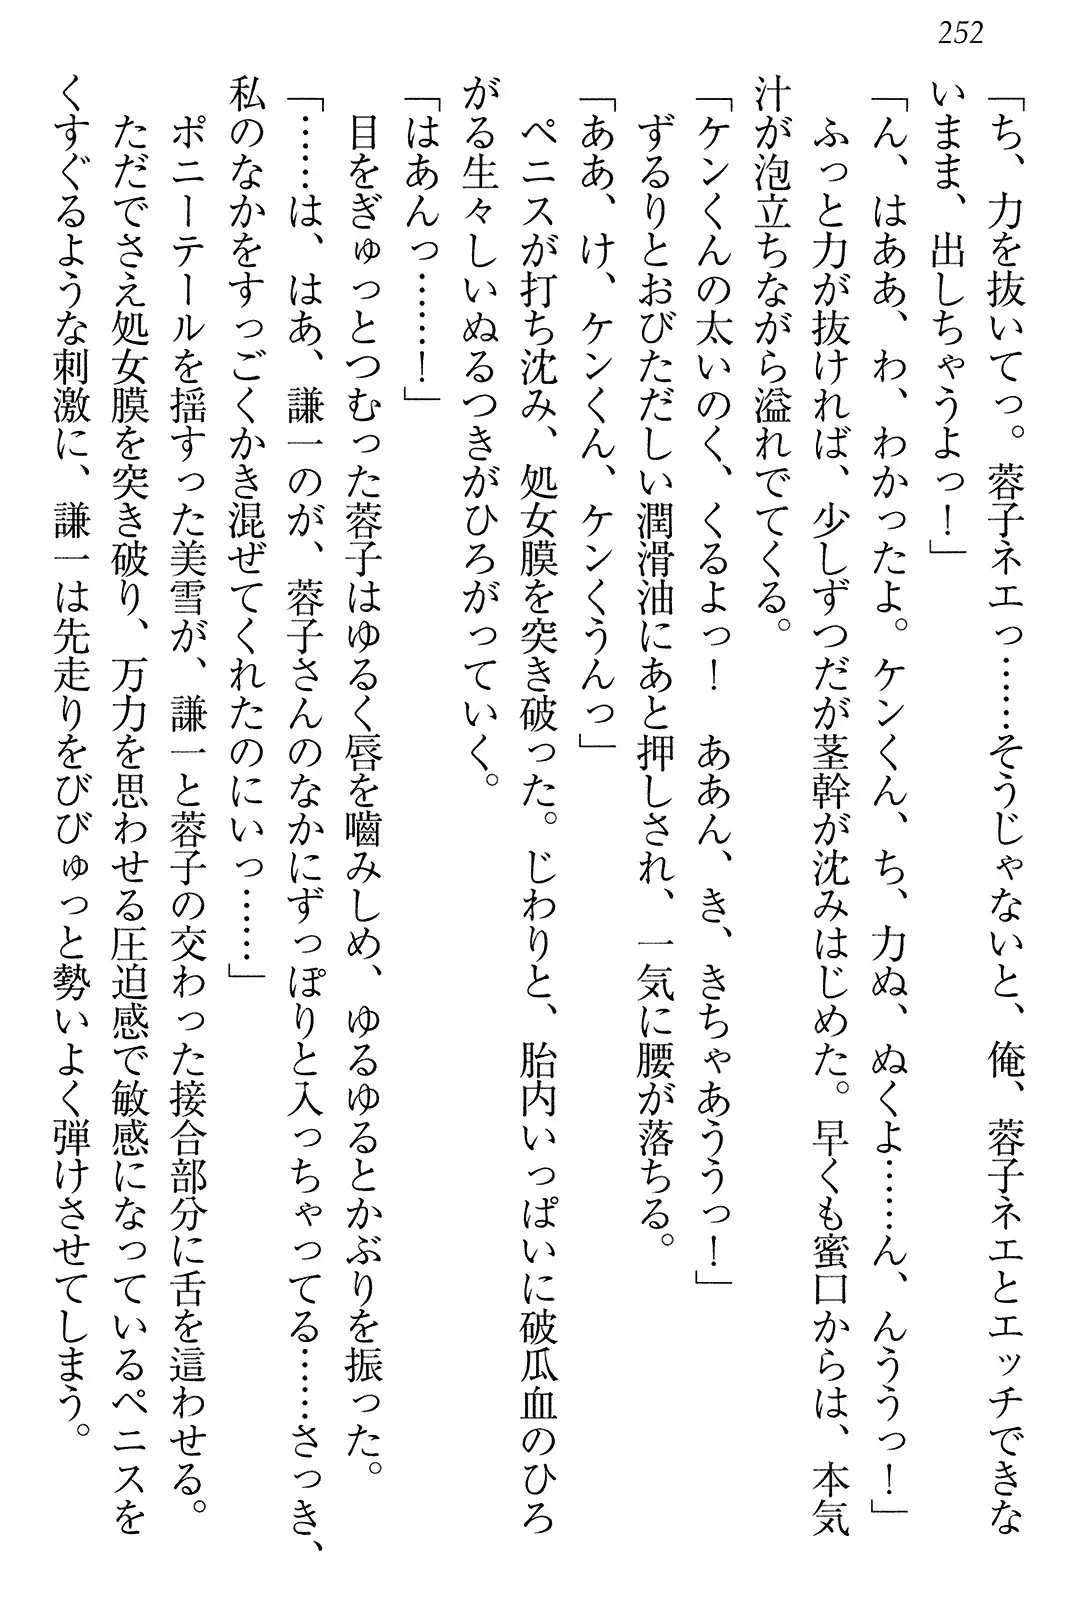 252
「ち、力を抜いてっ。蓉子ネエっ……そうじゃないと、俺、蓉子ネエとエッチできな
いまま、出しちゃうよっ！」
「ん、はああ、わ、わかったよ。ケンくん、ち、力ぬ、ぬくよ……ん、んううっ！」
ふっと力が抜ければ、少しずつだが茎幹が沈みはじめた。早くも蜜口からは、本気
汁が泡立ちながら溢れでてくる。
「ケンくんの太いのく、くるよっ！　ああん、き、きちゃあううっ！」
ずるりとおびただしい潤滑油にあと押しされ、一気に腰が落ちる。
「ああ、け、ケンくん、ケンくうんっ」
ペニスが打ち沈み、処女膜を突き破った。じわりと、胎内いっぱいに破瓜血のひろ
がる生々しいぬるつきがひろがっていく。
「はあんっ……！」
目をぎゅっとつむった蓉子はゆるく唇を嚙みしめ、ゆるゆるとかぶりを振った。
「……は、はあ、謙一のが、蓉子さんのなかにずっぽりと入っちゃってる……さっき、
私のなかをすっごくかき混ぜてくれたのにいっ……」
ポニーテールを揺すった美雪が、謙一と蓉子の交わった接合部分に舌を這わせる。
ただでさえ処女膜を突き破り、万力を思わせる圧迫感で敏感になっているペニスを
くすぐるような刺激に、謙一は先走りをびびゅっと勢いよく弾けさせてしまう。